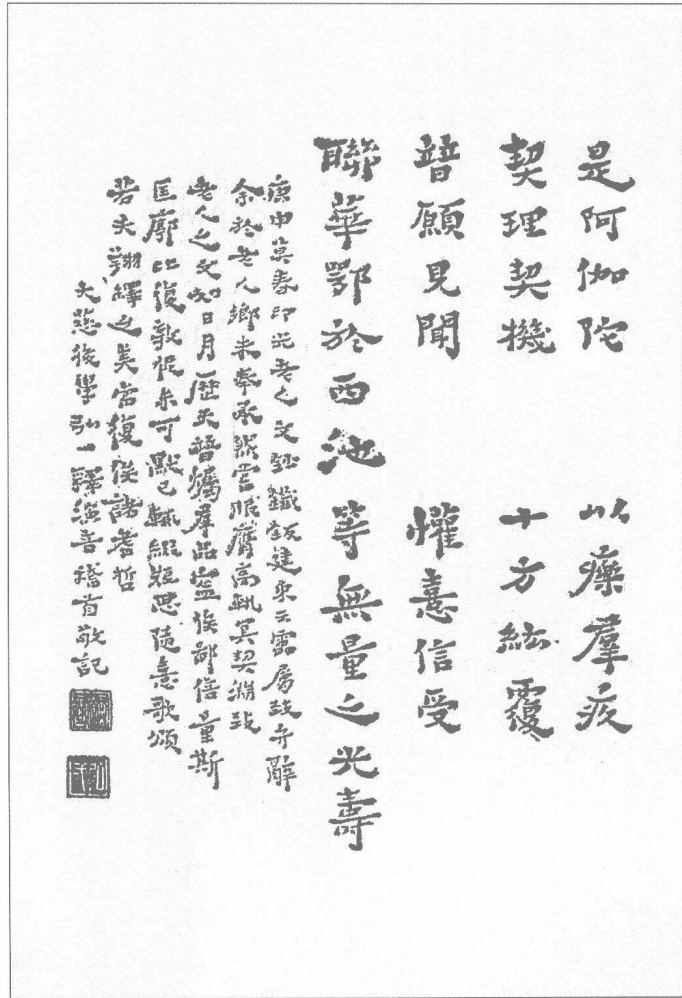 是阿伽陀 以療羣疚
契理契機 十方紘覆
普願見聞 懽憙信受
聯華鄂於西池 等無量之光壽
庚申莫春印光老人文鈔鐫板建東云雷屬致弁辭
余於老人鄉未奉承然嘗服膺高軌冥契淵致
老人之文如日月歷天普燭羣品盇俟鄙倍量斯
匡廓比復敦促未可默已輒綴短思隨憙歌頌
若夫翔繹之美當復俟諸耆哲
大慈後學弘一釋演音稽首敬記